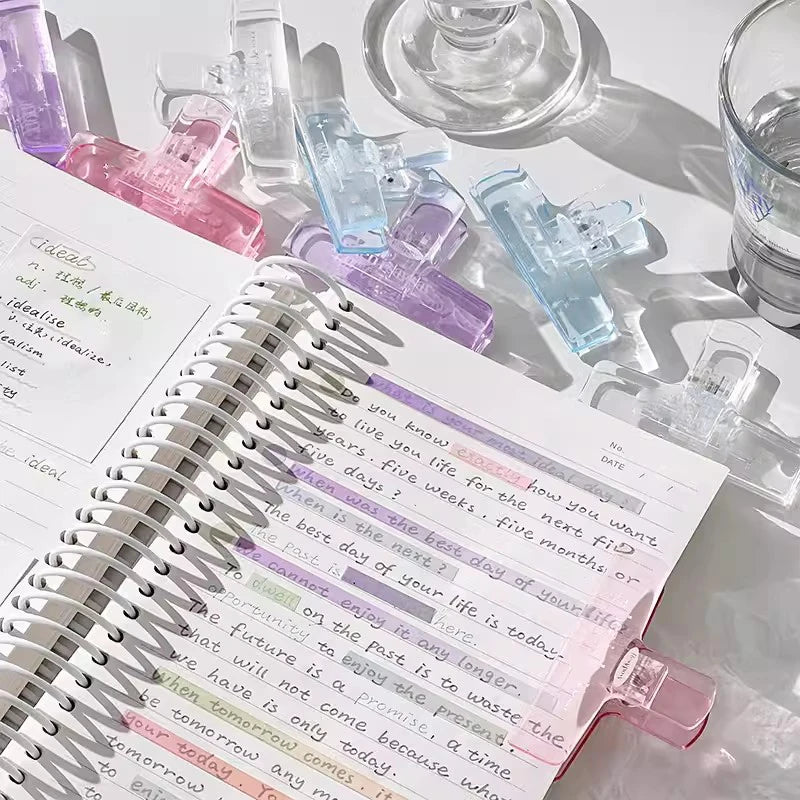 ideal
n. 理想 / 最后目的,
adj. 理想的
idealise
v. (使) idealize,
dealism
list
ty
he ideal
No.
DATE / /
What is your most ideal day?
Do you know exactly how you want
to live you life for the next fi
years. five weeks. five months or
five days?
When was the best day of your life
When is the next?
The best day of your life is today.
The past is here.
We cannot enjoy it any longer.
To dwell on the past is to waste the
opportunity to enjoy the present.
The future is a promise, a time
that will not come because wha
we have is only today.
When tomorrow comes. it
be tomorrow any mo
your today. Yo
tomorrow
to
to enjo